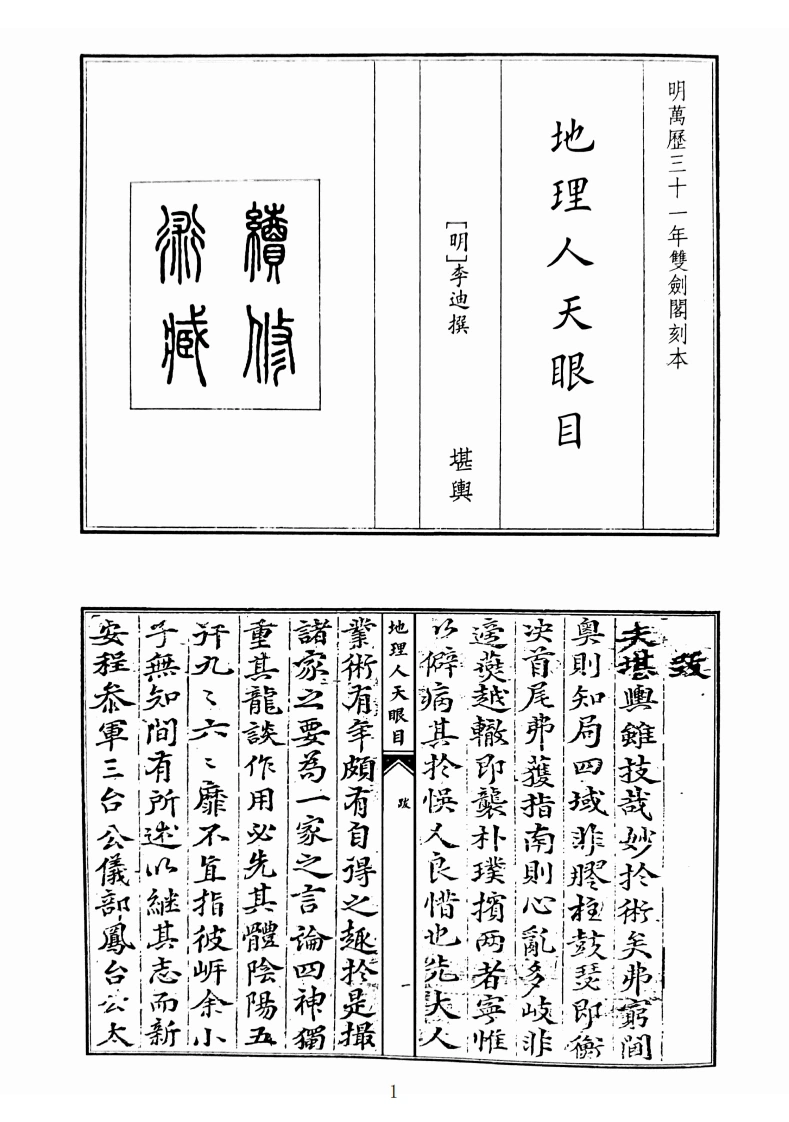 明萬歷三十一年雙劍閣刻本
地理人天眼目
[明]李迪撰 堪輿
續修
術藏
跋
夫堪輿雖技哉妙扵術矣弗窮閫
奥則知局四域非膠柱鼓瑟即衡
决首尾弗獲指南則心亂多岐非
邃奥越轍即襲朴璞擯两者寧惟
以僻病其扵悞人良惜也先大人
地理人天眼目
跋
一
業術有年頗有自得之趣扵是撮
諸家之要為一家之言論四神獨
重其龍談作用必先其體陰陽五
行九〻六〻靡不冝指彼岍余小
子無知間有所述以継其志而新
安程叅軍三台公儀部鳳台公太
1